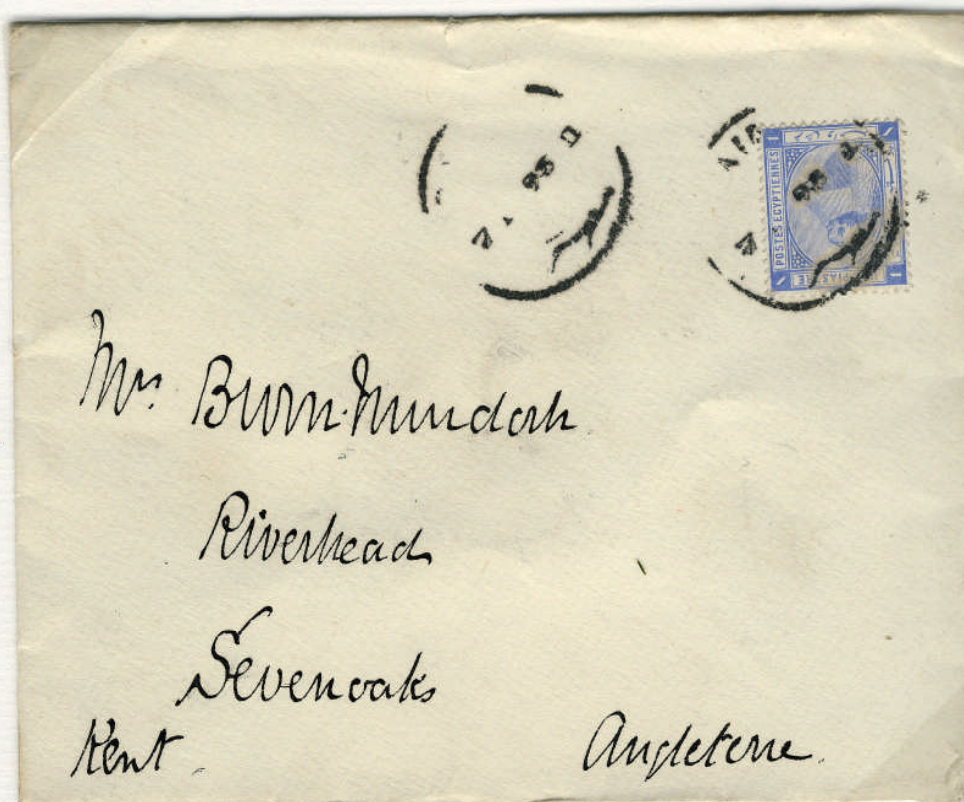 POSTES EGYPTIENNES
Mrs. Burn-Murdoch
Riverhead
Sevenoaks
Kent. Angleterre.